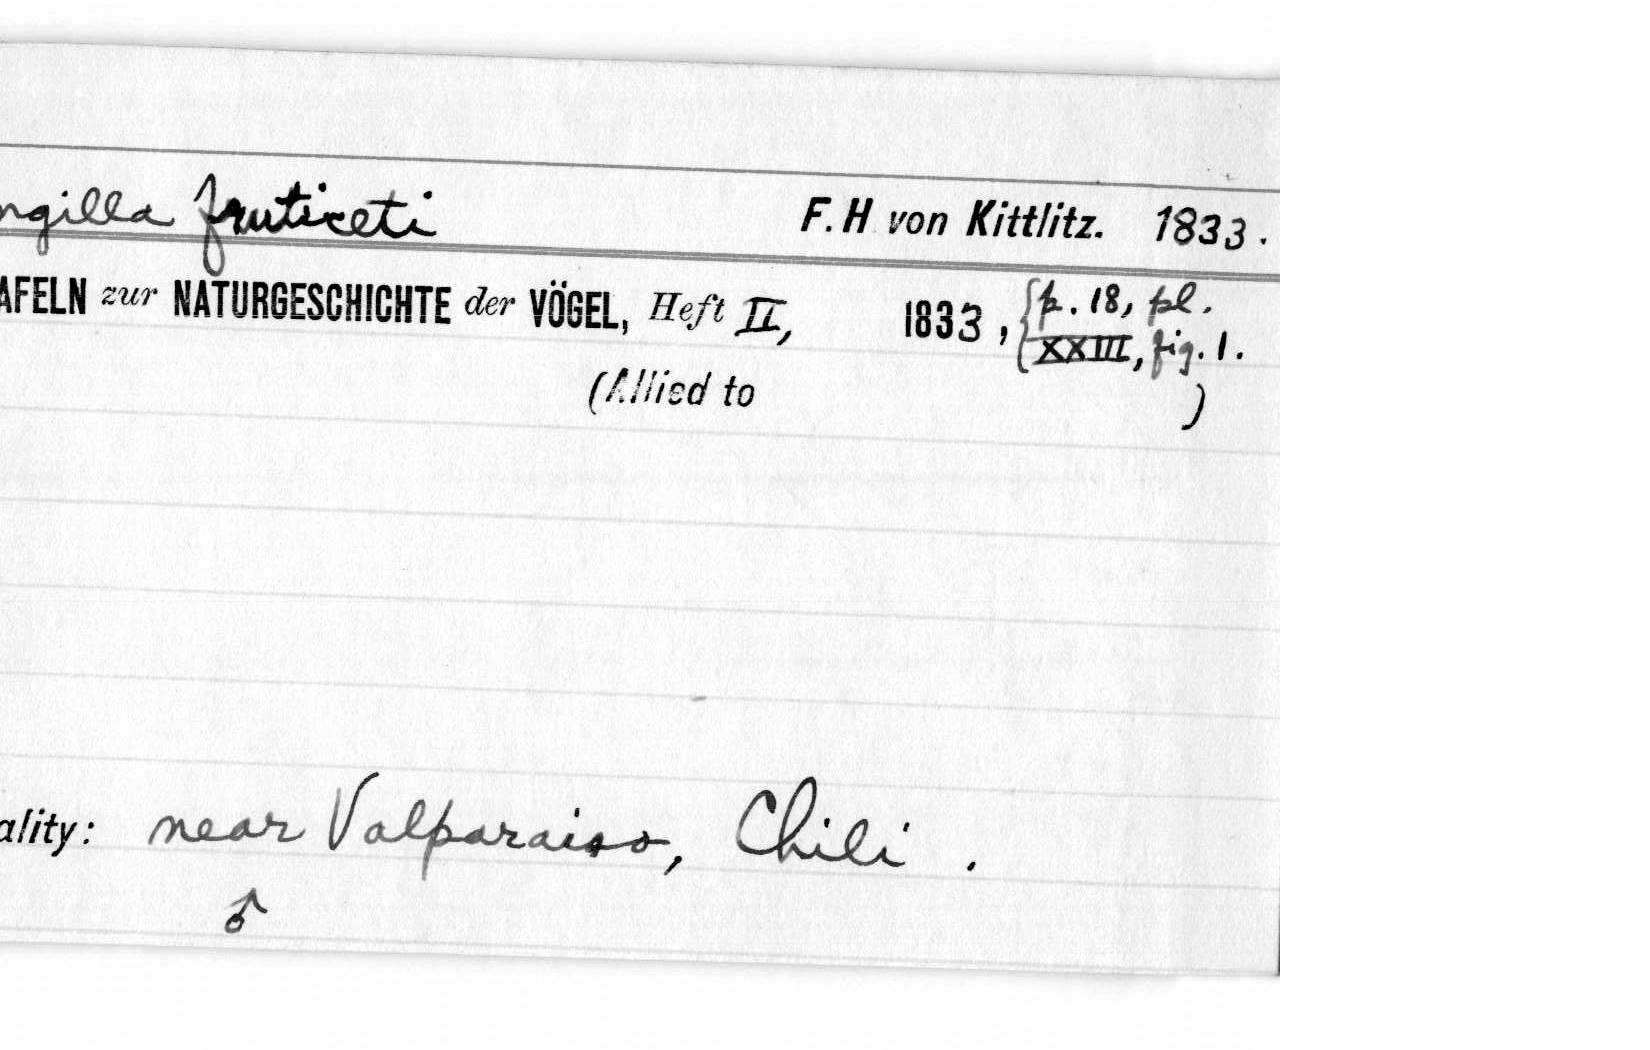 ngilla fruticeti F. H von Kittlitz. 1833.
AFELN zur NATURGESCHICHTE der VÖGEL, Heft II, 1833, { p. 18, pl.
XXIII, fig. 1.
(Allied to )
ality: near Valparaiso, Chili .
♂